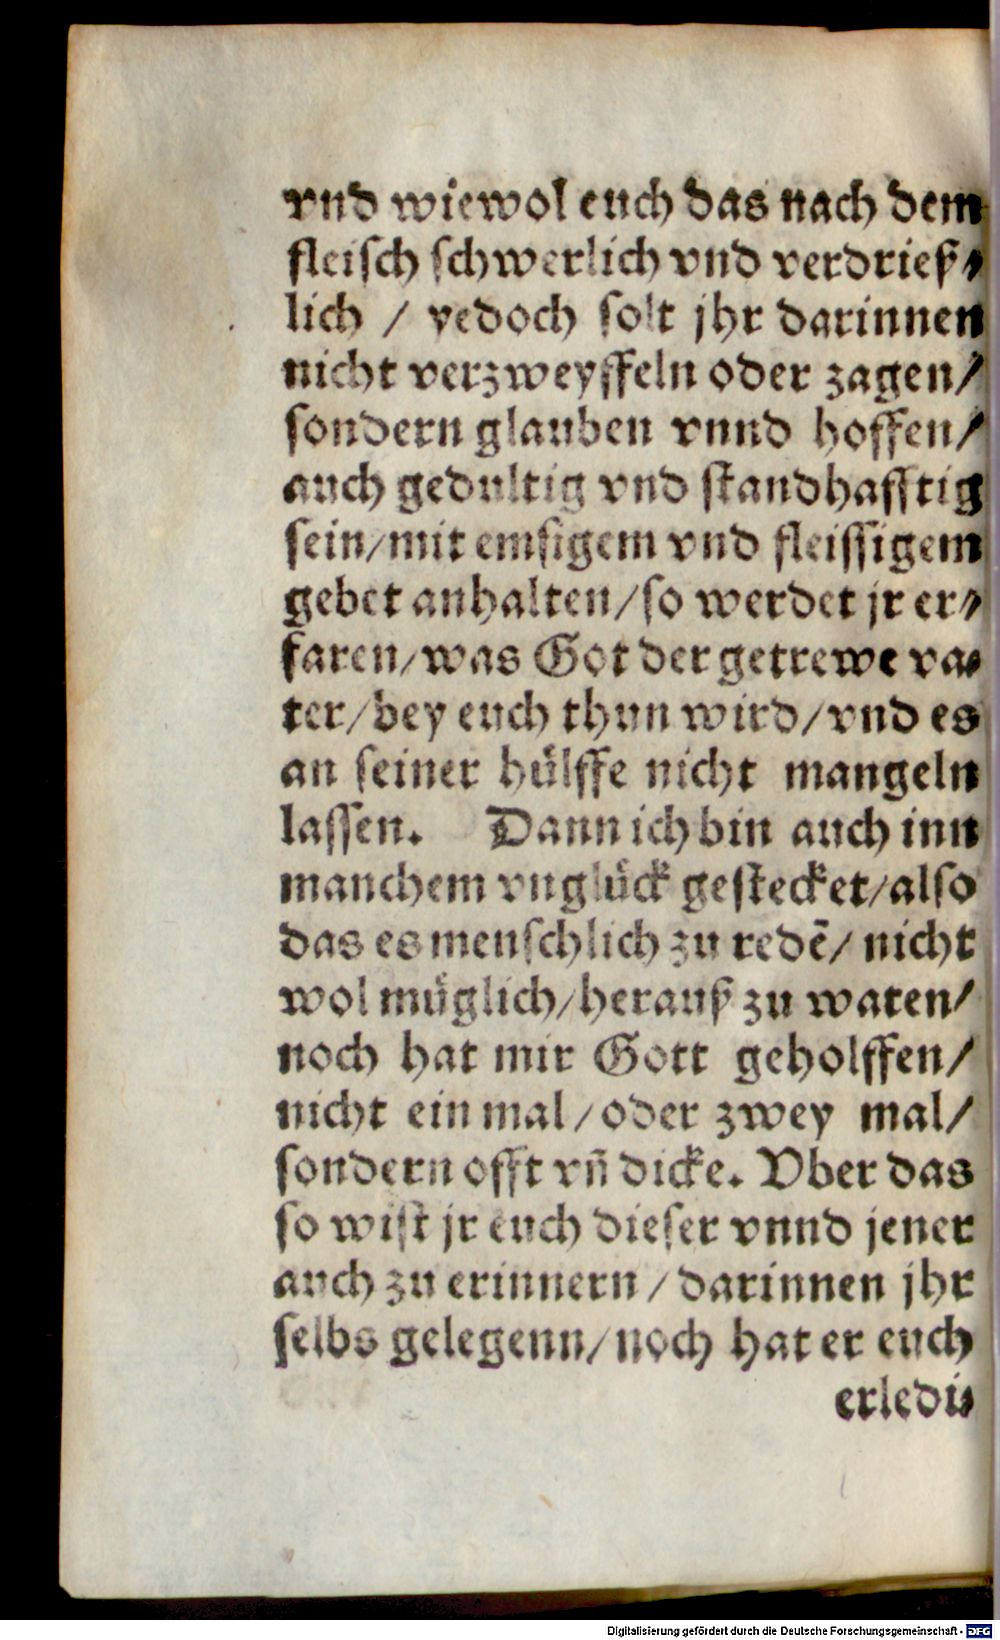 vnd wiewol euch das nach dem
fleisch schwerlich vnd verdrieß⸗
lich / yedoch solt jhr darinnen
nicht verzweyffeln oder zagen/
sondern glauben vnnd hoffen/
auch gedultig vnd standhafftig
sein/mit emsigem vnd fleissigem
gebet anhalten/so werdet jr er⸗
faren/was Got der getrewe va⸗
ter/bey euch thun wird/vnd es
an seiner hülffe nicht mangeln
lassen. Dann ich bin auch inn
manchem vnglück gestecket/also
das es menschlich zu redē/ nicht
wol müglich/herauß zu waten/
noch hat mir Gott geholffen/
nicht ein mal/oder zwey mal/
sondern offt vñ dicke. Vber das
so wist jr euch dieser vnnd jener
auch zu erinnern/darinnen jhr
selbs gelegenn/noch hat er euch
erledi⸗
Digitalisierung gefördert durch die Deutsche Forschungsgemeinschaft - DFG